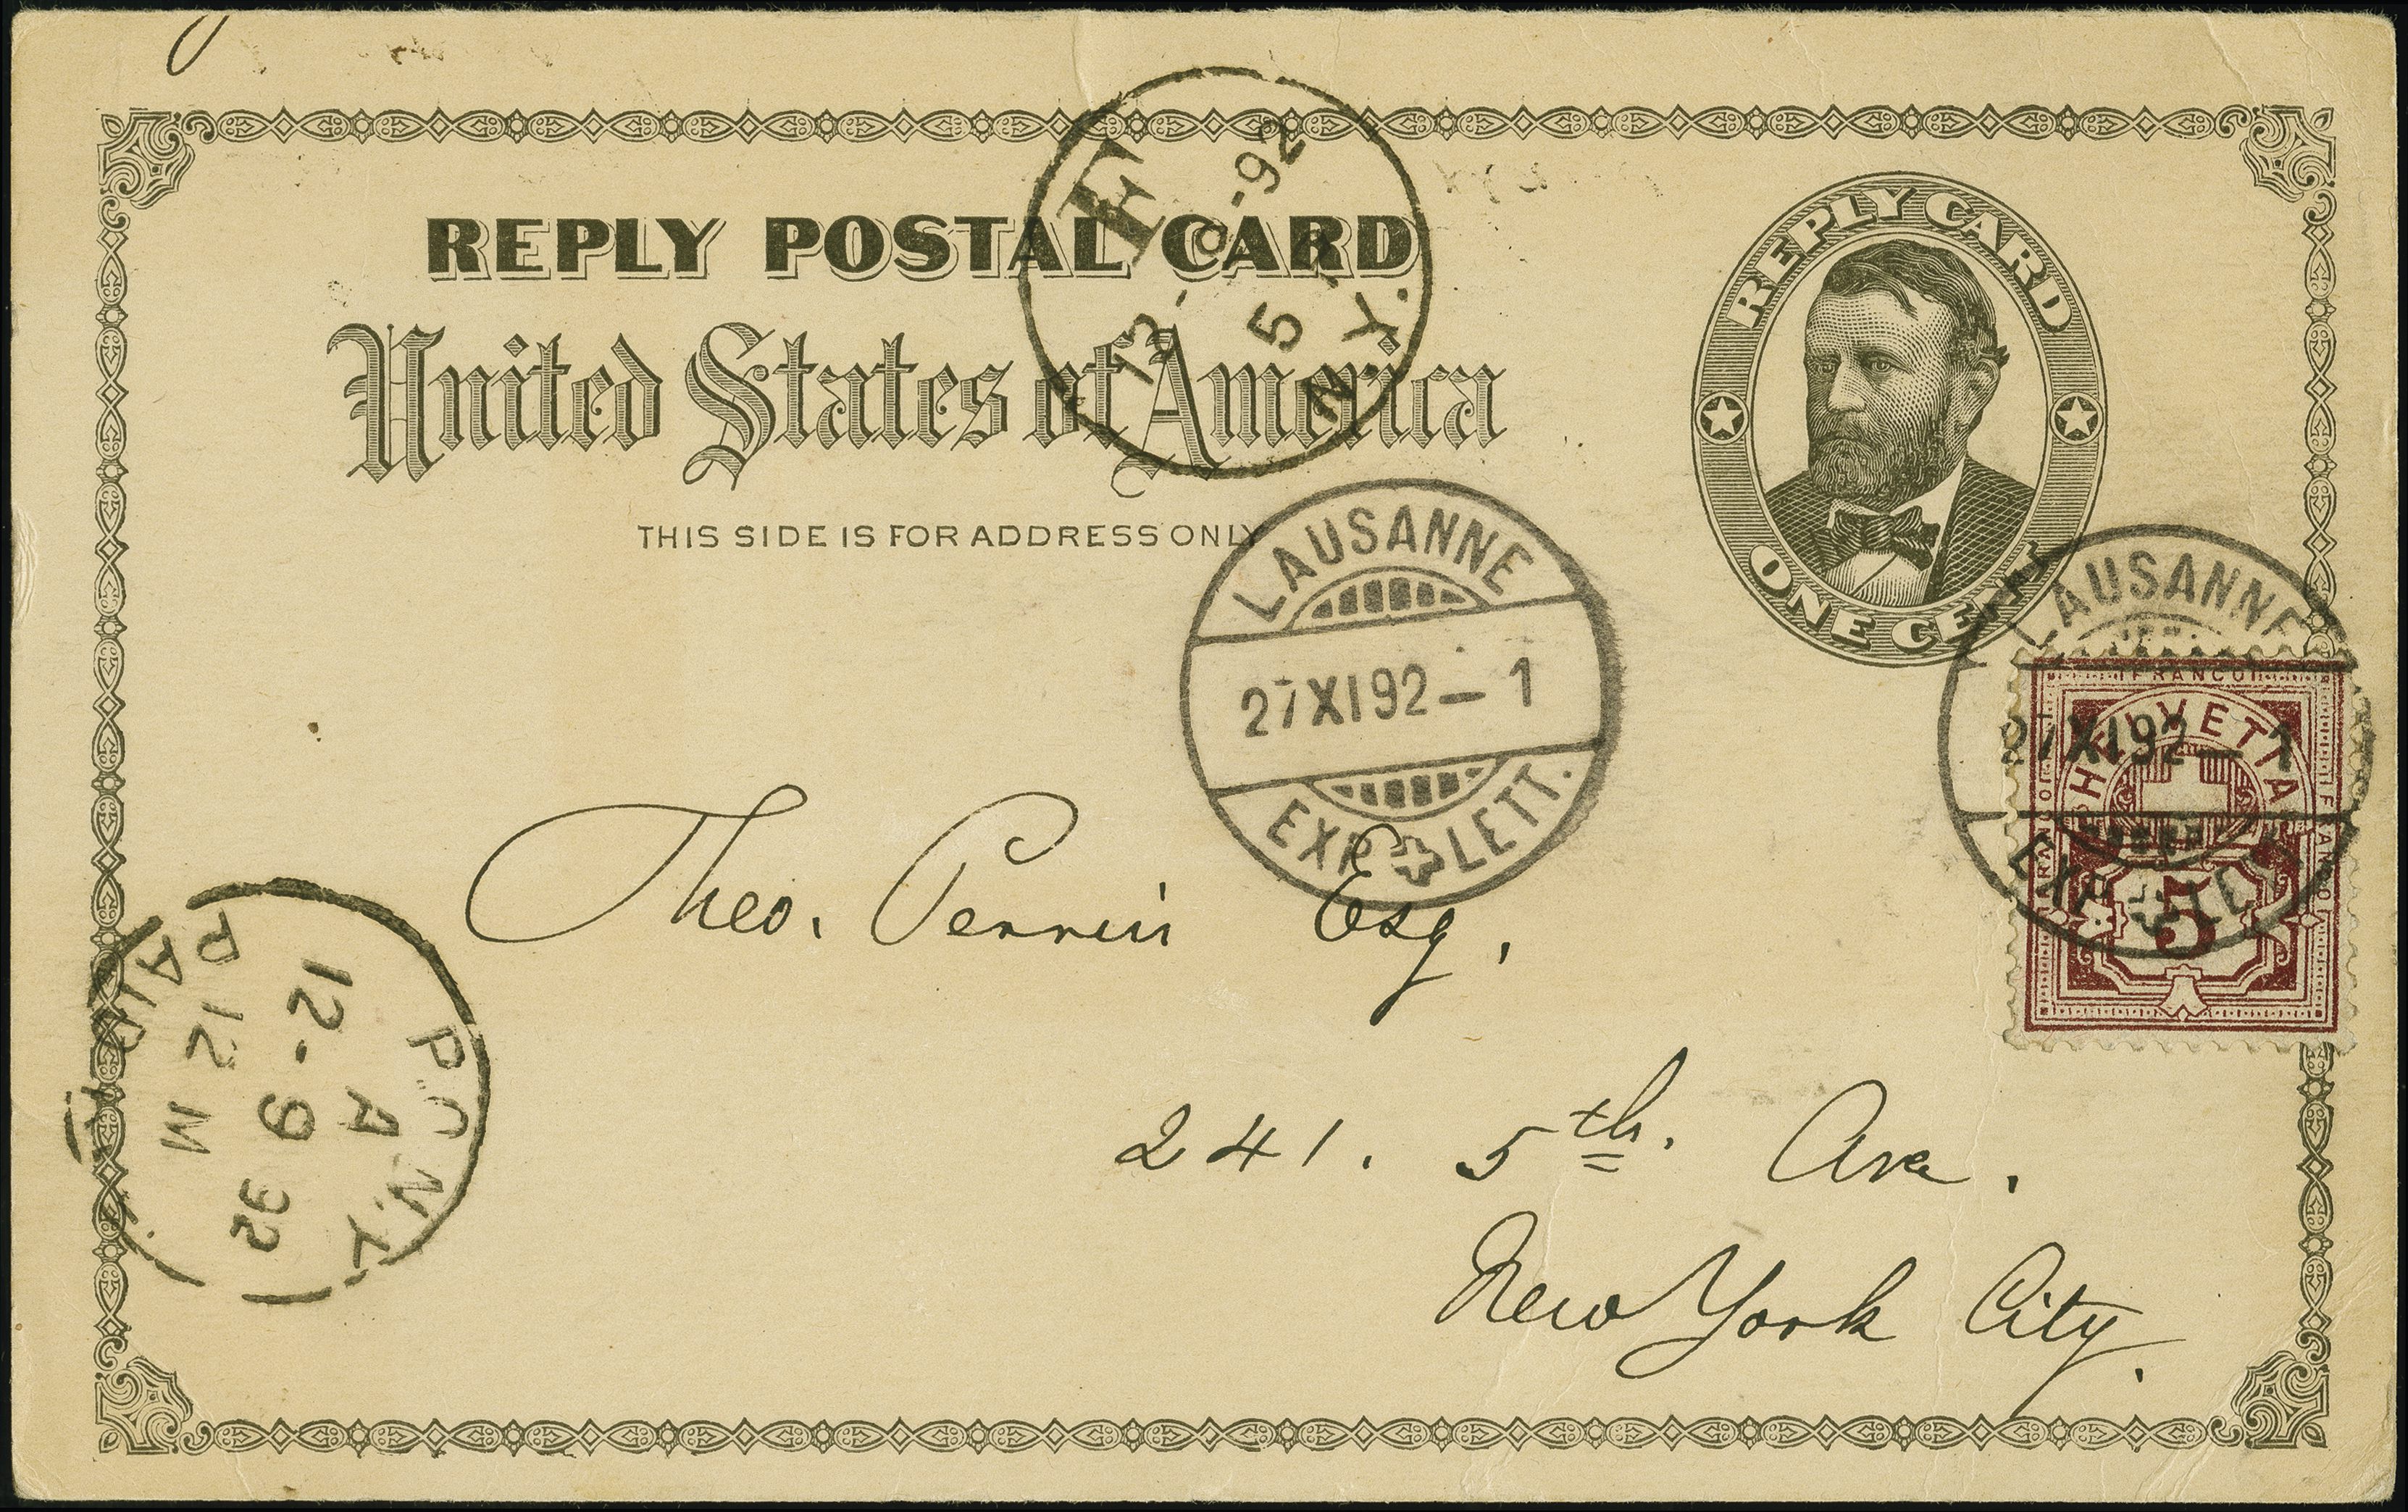 REPLY POSTAL CARD
United States of America
THIS SIDE IS FOR ADDRESS ONLY
REPLY CARD
ONE CENT
F
12-
-92
5
N.Y.
LAUSANNE
27 XI 92 — 1
EXP. LETT.
LAUSANNE
27 XI 92 — 1
EXP. LETT.
FRANCO
HELVETIA
FRANCO
FRANCO
5
Theo. Perrin Esq.
241. 5th. Ave.
New York City.
P.O. N.Y.
A
12-9 92
12 M
PAID